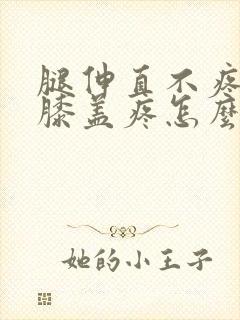 腿伸直不疼
膝盖疼怎麼
她的小王子